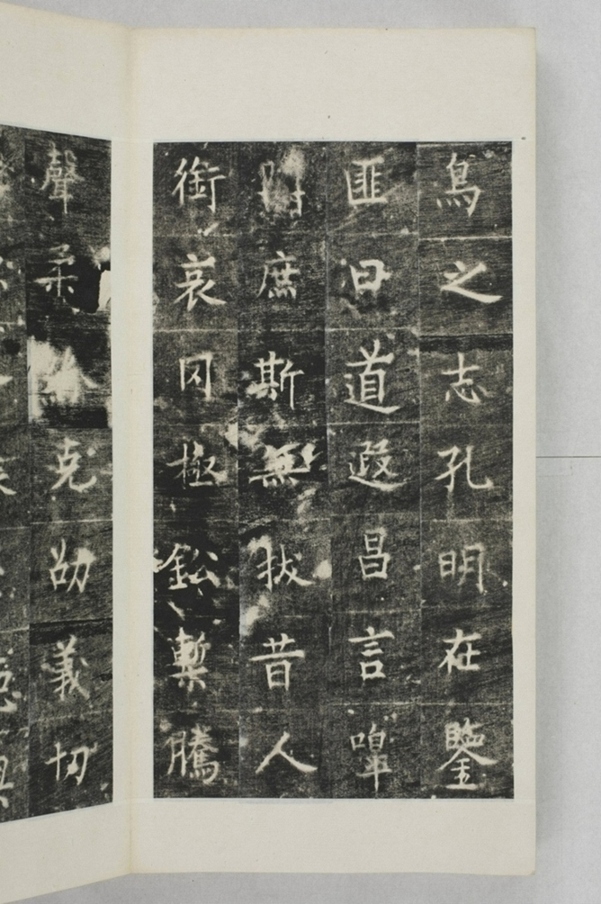 鳥之志孔明在鑒
匪曰道遐昌言嘷
庶斯無拔昔人
銜哀罔極鈆槧騰
聲柔克劭義切